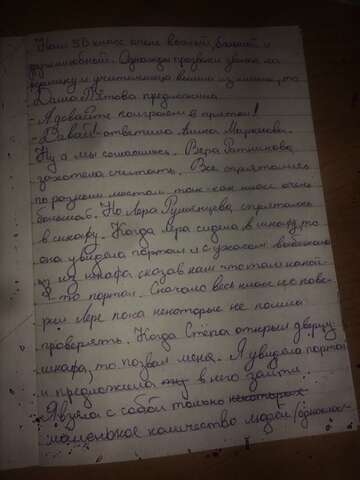 Наш 5В класс очень весёлый, большой и
дружелюбный. Однажды прозвенел звонок на
перемену и учительница вышла из класса, то
Даша Пётова предложила
- А давайте поиграем в прятки!
- Давай! - ответила Алина Маркелова.
Ну а мы согласились. Вера Ратникова
захотела считать. Все спрятались
по разным местам так как класс очень
большой. Но Лера Румянцева спряталась
в шкафу. Когда Лера сидела в шкафу, то
она увидела портал и с ужасом выбежала
из шкафа сказав нам что там какой
- то портал. Сначало весь класс не пове-
рил Лере пока некоторые не пошли
проверять. Когда Стёпа открыл дверцу
шкафа, то позвал меня. Я увидела портал
и предложила в него зайти
Я взяла с собой только некоторых
маленькое количество людей (однокласс-